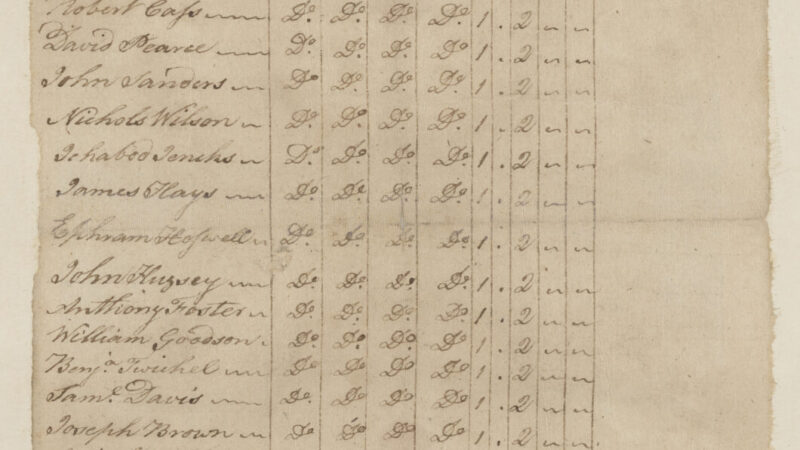 Robert Cass Do. Do. Do. Do. 1 . 2 " "
David Pearce Do. Do. Do. Do 1 . 2 " "
John Sanders Do Do. Do. Do. 1 . 2 " "
Nichols Wilson Do. Do. Do. Do. 1 . 2 " "
Ichabod Jencks Do Do. Do. Do. 1 . 2 " "
James Hays Do. Do. Do. Do. 1 . 2 " "
Ephram Do. Do. Do. Do. 1 . 2 " "
John Do. Do. Do. Do. 1 . 2 " "
Anthony Foster Do. Do. Do. Do. 1 . 2 " "
William Goodson Do. Do. Do. Do. 1 . 2 " "
Benja. Twichel Do. Do. Do. Do. 1 . 2 " "
Saml. Davis Do. Do. Do. Do. 1 . 2 " "
Joseph Brown Do. Do. Do. Do. 1 . 2 " "